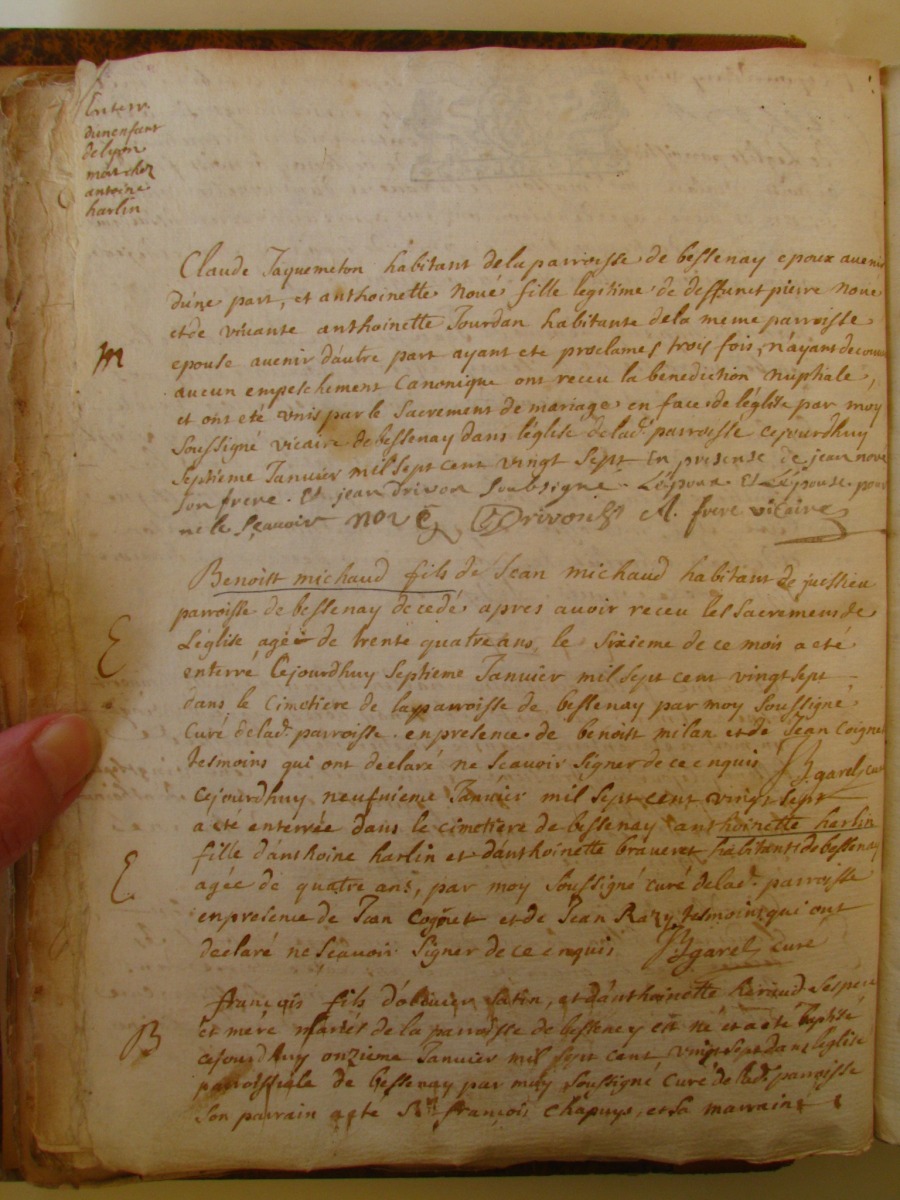 Enterr.
dun enfant
de lyon
mort chez
antoine
harlin
Claude Jaquemeton habitant de la parroisse de bessenay epoux avenir
dúne part, et anthoinette Noue fille legitime de deffunct pierre Noue
et de viuante anthoinette Jourdan habitante de la meme parroisse
M
epouse avenir dáutre part ayant ete proclames trois fois, n'ayant decouu
aucun empeschement Canonique ont receu la benediction nuptiale,
et ont eté vnis par le Sacrement de mariage en face de léglise par moy
Soussigné vicaire de bessenay dans léglise de lad.e parroisse cejourdhuy
Septieme Januier mil sept cent vingt sept En presense de jean noue
son frere. Et jean drivon Soubsigné. L'époux Et L'épouse pour
ne le Sçauoir NOVE Drivon A. frere vicaire
Benoist michaud fils de Jean michaud habitant de jussieu
parroisse de bessenay decedé apres auoir receu les Sacremens de
E
Léglise agée de trente quatre ans, le Sixieme de ce mois a eté
enterré Cejourdhuy Septieme Januier mil sept cent vingt sept
dans le Cimetiere de la parroisse de bessenay par moy Soussigné
Curé de lad.e parroisse. en presence de benoist milan et de Jean Coignet
tesmoins qui ont declaré ne Scauoir Signer de ce enquis JBgarel curé
Cejourdhuy neufuieme Januier mil sept cent vingt sept
a eté enterrée dans le cimetiere de bessenay anthoinette harlin
E
fille dánthoine harlin et dánthoinette braueret habitants de bessenay
agée de quatre ans, par moy Soussigné curé de lad.e parroisse
en presence de Jean Cognet et de Jean Razy tesmoins qui ont
declaré ne Scauoir Signer de ce enquis JBgarel curé
françois fils dóliuier Satin, et dánthoinette Ses pere
B
et mere mariés de la parroisse de bessenay est né et a eté baptisé
cejourdhuy onzieme Januier mil sept cent vingt sept dans léglise
parroissiale de bessenay par moy Soussigné Curé de lad.e parroisse
Son parrain a ete Sr françois Chapuys, et Sa marraine